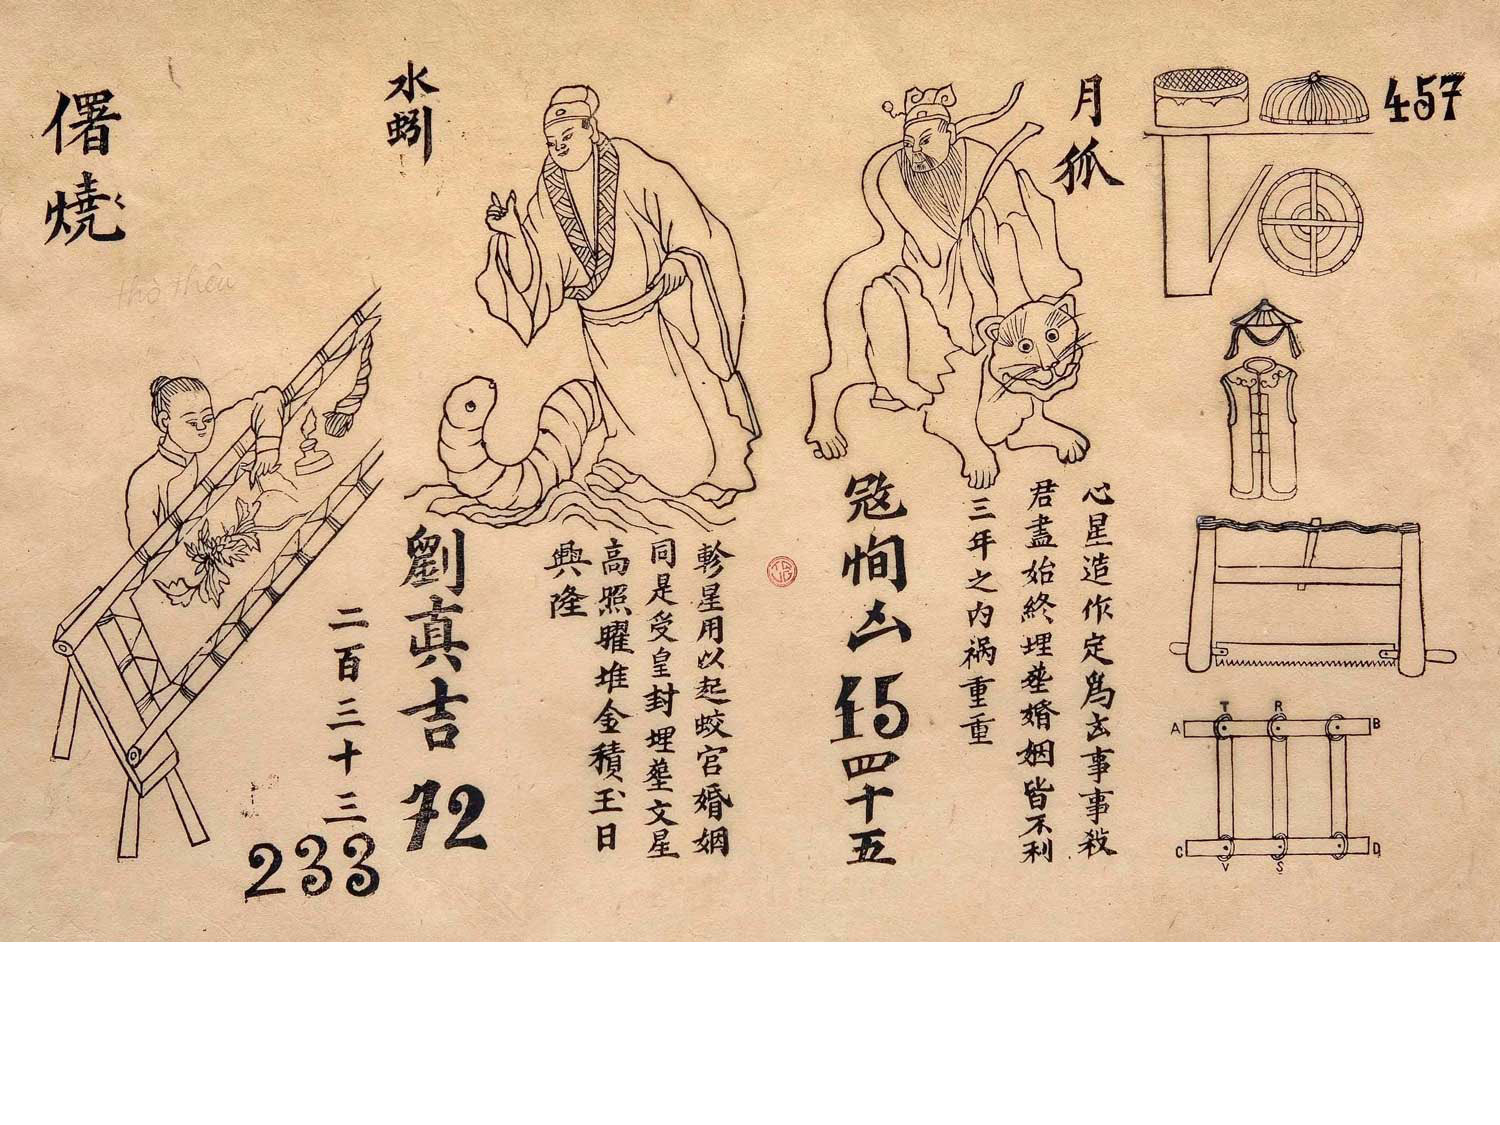 457
月狐
心星造作定為玄事事殺
君盡始終埋塟婚姻皆不利
三年之内祸重重
㓂恂凶
45
四十五
T
R
A
B
C
D
V
S
水蚓
軫星用以起蛟宮婚姻
同是受皇封埋塟文星
高照曜堆金積玉日
興隆
劉真吉
72
燒
thợ thêu
二百三十三
233